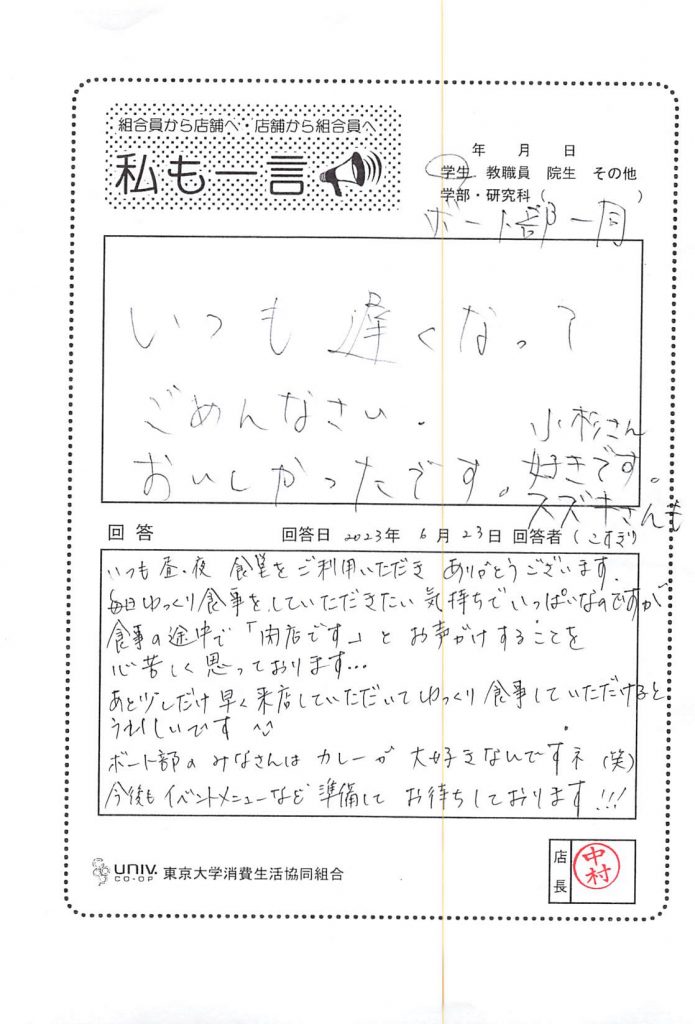 組合員から店舗へ・店舗から組合員へ
私も一言
年 月 日
学生 教職員 院生 その他
学部・研究科( )
ボート部一同
いつも遅くなって
ごめんなさい.
おいしかったです。
小杉さん
好きです。
スズキさんも
回答 回答日 2023年 6月23日 回答者(こすぎ)
いつも昼・夜 食堂をご利用いただき ありがとうございます.
毎日ゆっくり食事をしていただきたい気持ちでいっぱいなのですが
食事の途中で「閉店です」と お声がけすることを
心苦しく思っております...
あと少しだけ早く来店していただいてゆっくり食事していただけると
うれしいです
ボート部のみなさんは カレーが 大好きなんですネ(笑)
今後もイベントメニューなど準備して お待ちしております!!!
UNIV. CO-OP 東京大学消費生活協同組合
店長
中村